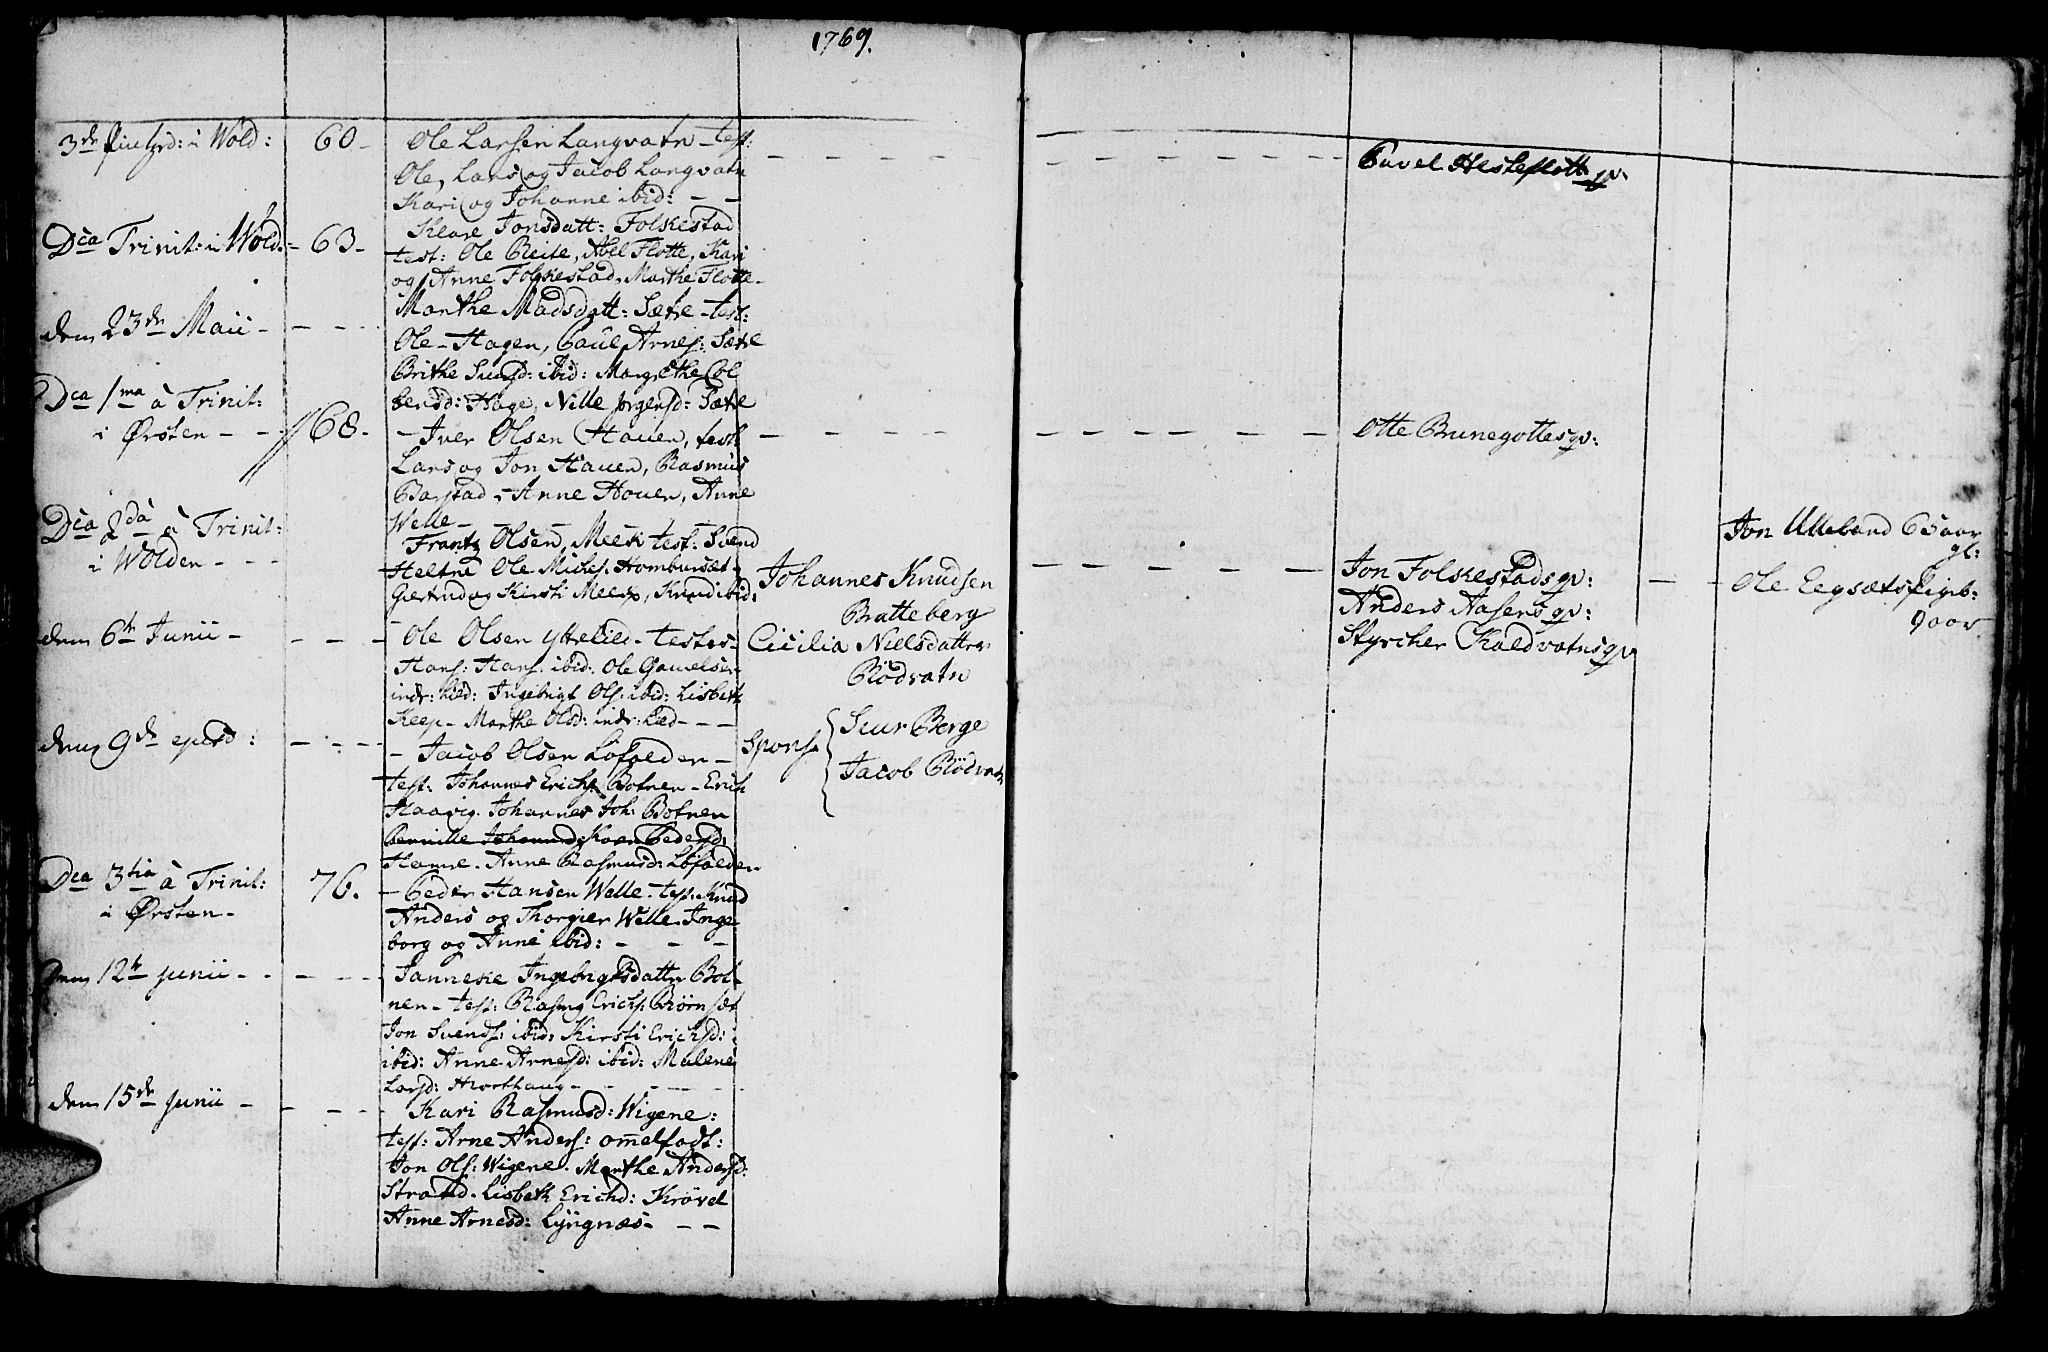 1769.
3de Pintzd: i Wold:
60 -
Ole Larsen Langvatn - test:
Ole, Lars og Jacob Langvatn
Kari og Johanne ibid: - -
Povel Hesteflott gv.
Dca Trinit: i Wold.
- 63 -
Klare Jonsdatt: Folkestad
test: Ole Reite, Abel Flotte, Kari
og Anne Folkestad, Marthe Flotte -
dem 23de Maii -
- - - -
Marthe Madsdatt: Sætre - test:
Ole - Hagen, Paul Arnes: Sætre
Brithe Siursd: ibid: Margrethe Col
bensd: Hage, Nille Jørgensd: Sætre
Dca 1ma à Trinit:
i Ørsten - -
68 -
- Iver Olsen Hauen, test:
Lars og Jon Hauen, Rasmus
Barstad, Anne Houen, Anne
Welle -
Otte Brunegottes gv:
Dca 2da à Trinit:
i Wolden - - -
Frantz Olsen Meek test: Svend
Heltne Ole Michs. Hombursæt -
Giertrud og Kirsti Meek, Knud ibid:
Johannes Knudsen
Bratteberg
Cicilia Nielsdatter
Rödvatn
Sponss
Siur Berge
Jacob Rödvatn
Jon Folkestads gv:
Anders Aasens gv:
Styrcher Kaldvatns gv
Jon Ulleland 65 aar
gl:
Ole Eegsæts Pigeb:
9 aar.
dem 6te Junii -
- - -
Ole Olsen Ytrelied - testes -
Hans: Hans. ibid. Ole Gamelsen
indr: lied: Ingebrigt Ols: ibid: Lisbeth
Keep - Marthe Olsd: indr: Lied - - -
dem 9de ejusd:
- - - -
- Jacob Olsen Løfolden -
test: Johannes Erichs. Botnen - Erich
Haavig. Johannes Joh: Botnen
Pedersd:
Hamre. Anne Rasmusd: Løfolden
Dca 3tia à Trinit:
i Ørsten -
76.
- Peder Hansen Welle - test: Knud
Anders og Thorgier Welle. Inge
borg og Anne ibid: - - -
dem 12te Junii - -
- - - -
Janneke Ingebrigtsdatter Bot-
nen - test: Rasmus Erichs: Biørnsæt
Jon Svends: ibid: Kirsti Erichsd:
ibid: Anne Arnesd: ibid: Malene
Larsd: Hiorthaug - - - - -
dem 15de Junii -
- - - -
Kari Rasmusd: Wigene:
test: Arne Anders: Ommelfodt:
Jon Ols: Wigene. Marthe Andersd:
Strand. Lisbeth Erichsd: Krøvel
Anne Arnesd: Lyngnæs - - -